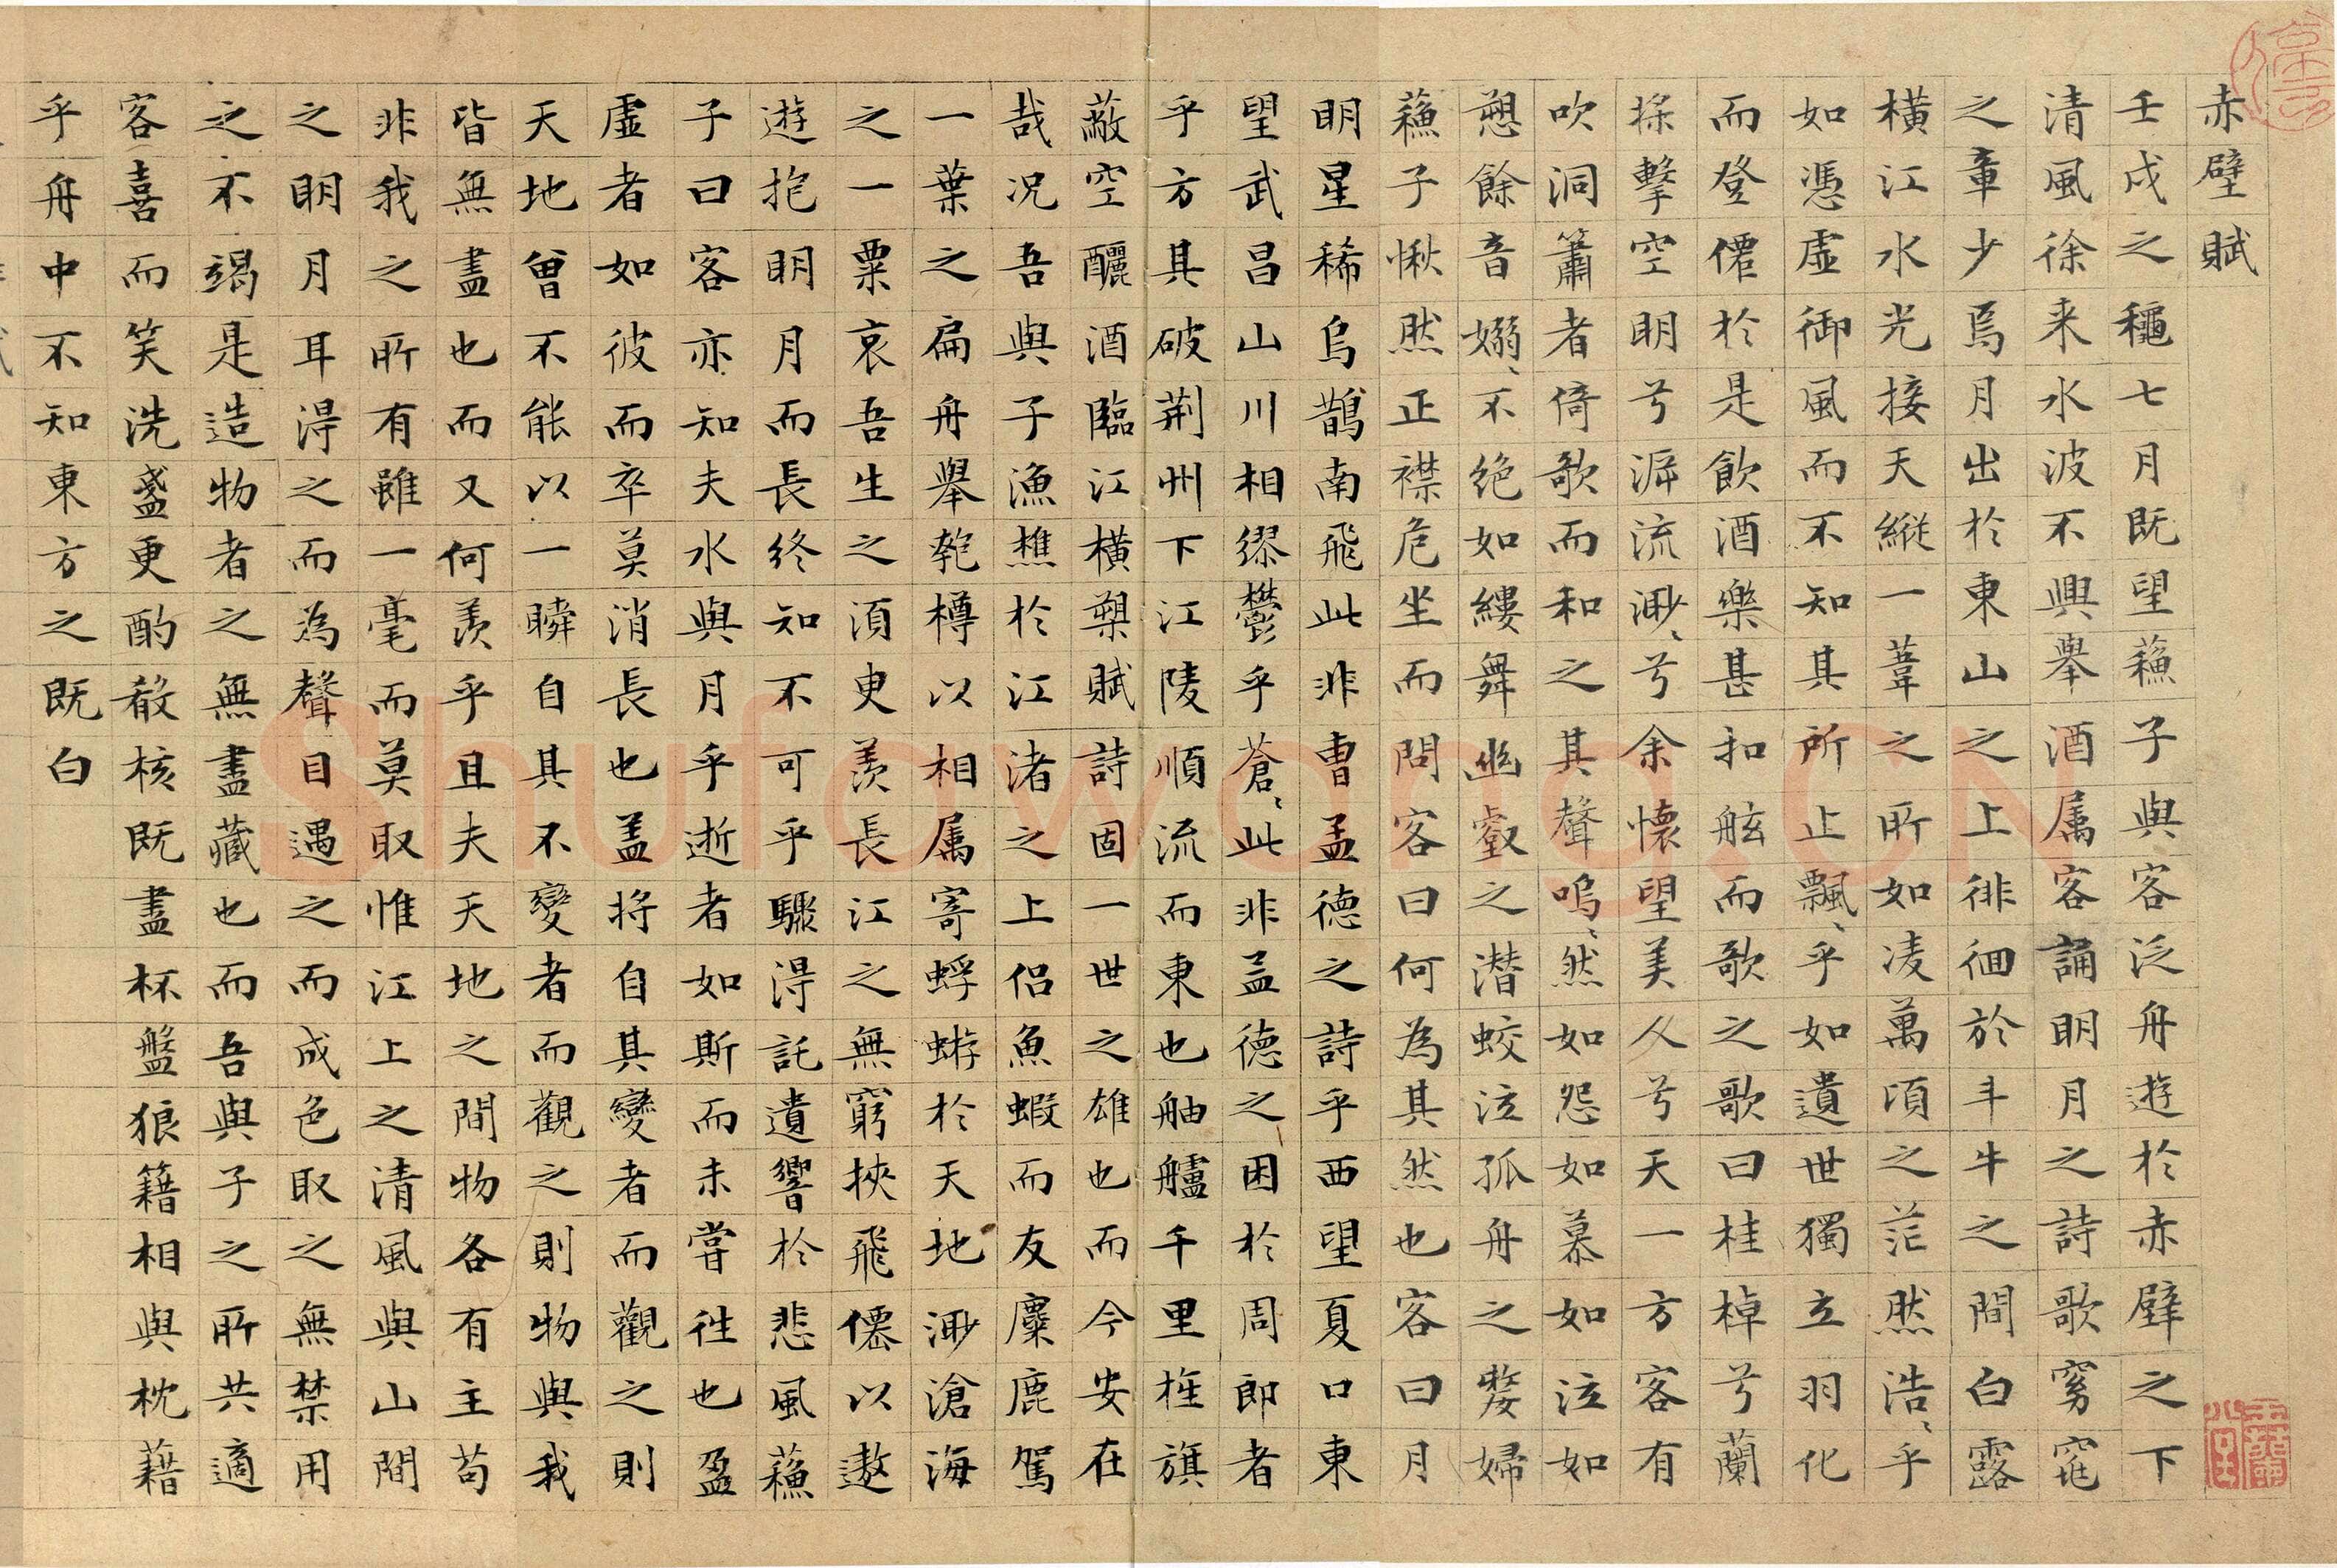 赤壁賦
壬戌之龝七月既望蘓子與客泛舟遊於赤壁之下
清風徐来水波不興舉酒属客誦明月之詩歌窈窕
之章少焉月出於東山之上徘徊於斗牛之間白露
橫江水光接天縱一葦之所如凌萬頃之茫然浩〻乎
如憑虛御風而不知其所止飄〻乎如遺世獨立羽化
而登僊於是飲酒樂甚扣舷而歌之歌曰桂棹兮蘭
槳擊空明兮泝流渺〻兮余懷望美人兮天一方客有
吹洞簫者倚歌而和之其聲嗚〻然如怨如慕如泣如
愬餘音嫋〻不絶如縷舞幽壑之潜蛟泣孤舟之嫠婦
蘓子愀然正襟危坐而問客曰何為其然也客曰月
明星稀烏鵲南飛此非曹孟德之詩乎西望夏口東
望武昌山川相繆鬱乎蒼〻此非孟德之困於周郎者
乎方其破荆州下江陵順流而東也舳艫千里旌旗
蔽空釃酒臨江橫槊賦詩固一世之雄也而今安在
哉况吾與子漁樵於江渚之上侣魚蝦而友麋鹿駕
一葉之扁舟舉匏樽以相属寄蜉蝣於天地渺滄海
之一粟哀吾生之須臾羨長江之無窮挾飛僊以遨
遊抱明月而長終知不可乎驟得託遺響於悲風蘓
子曰客亦知夫水與月乎逝者如斯而未嘗往也盈
虛者如彼而卒莫消長也盖將自其變者而觀之則
天地曾不能以一瞬自其不變者而觀之則物與我
皆無盡也而又何羨乎且夫天地之間物各有主苟
非我之所有雖一毫而莫取惟江上之清風與山間
之明月耳得之而為聲目遇之而成色取之無禁用
之不竭是造物者之無盡藏也而吾與子之所共適
客喜而笑洗盞更酌肴核既盡杯盤狼籍相與枕藉
乎舟中不知東方之既白